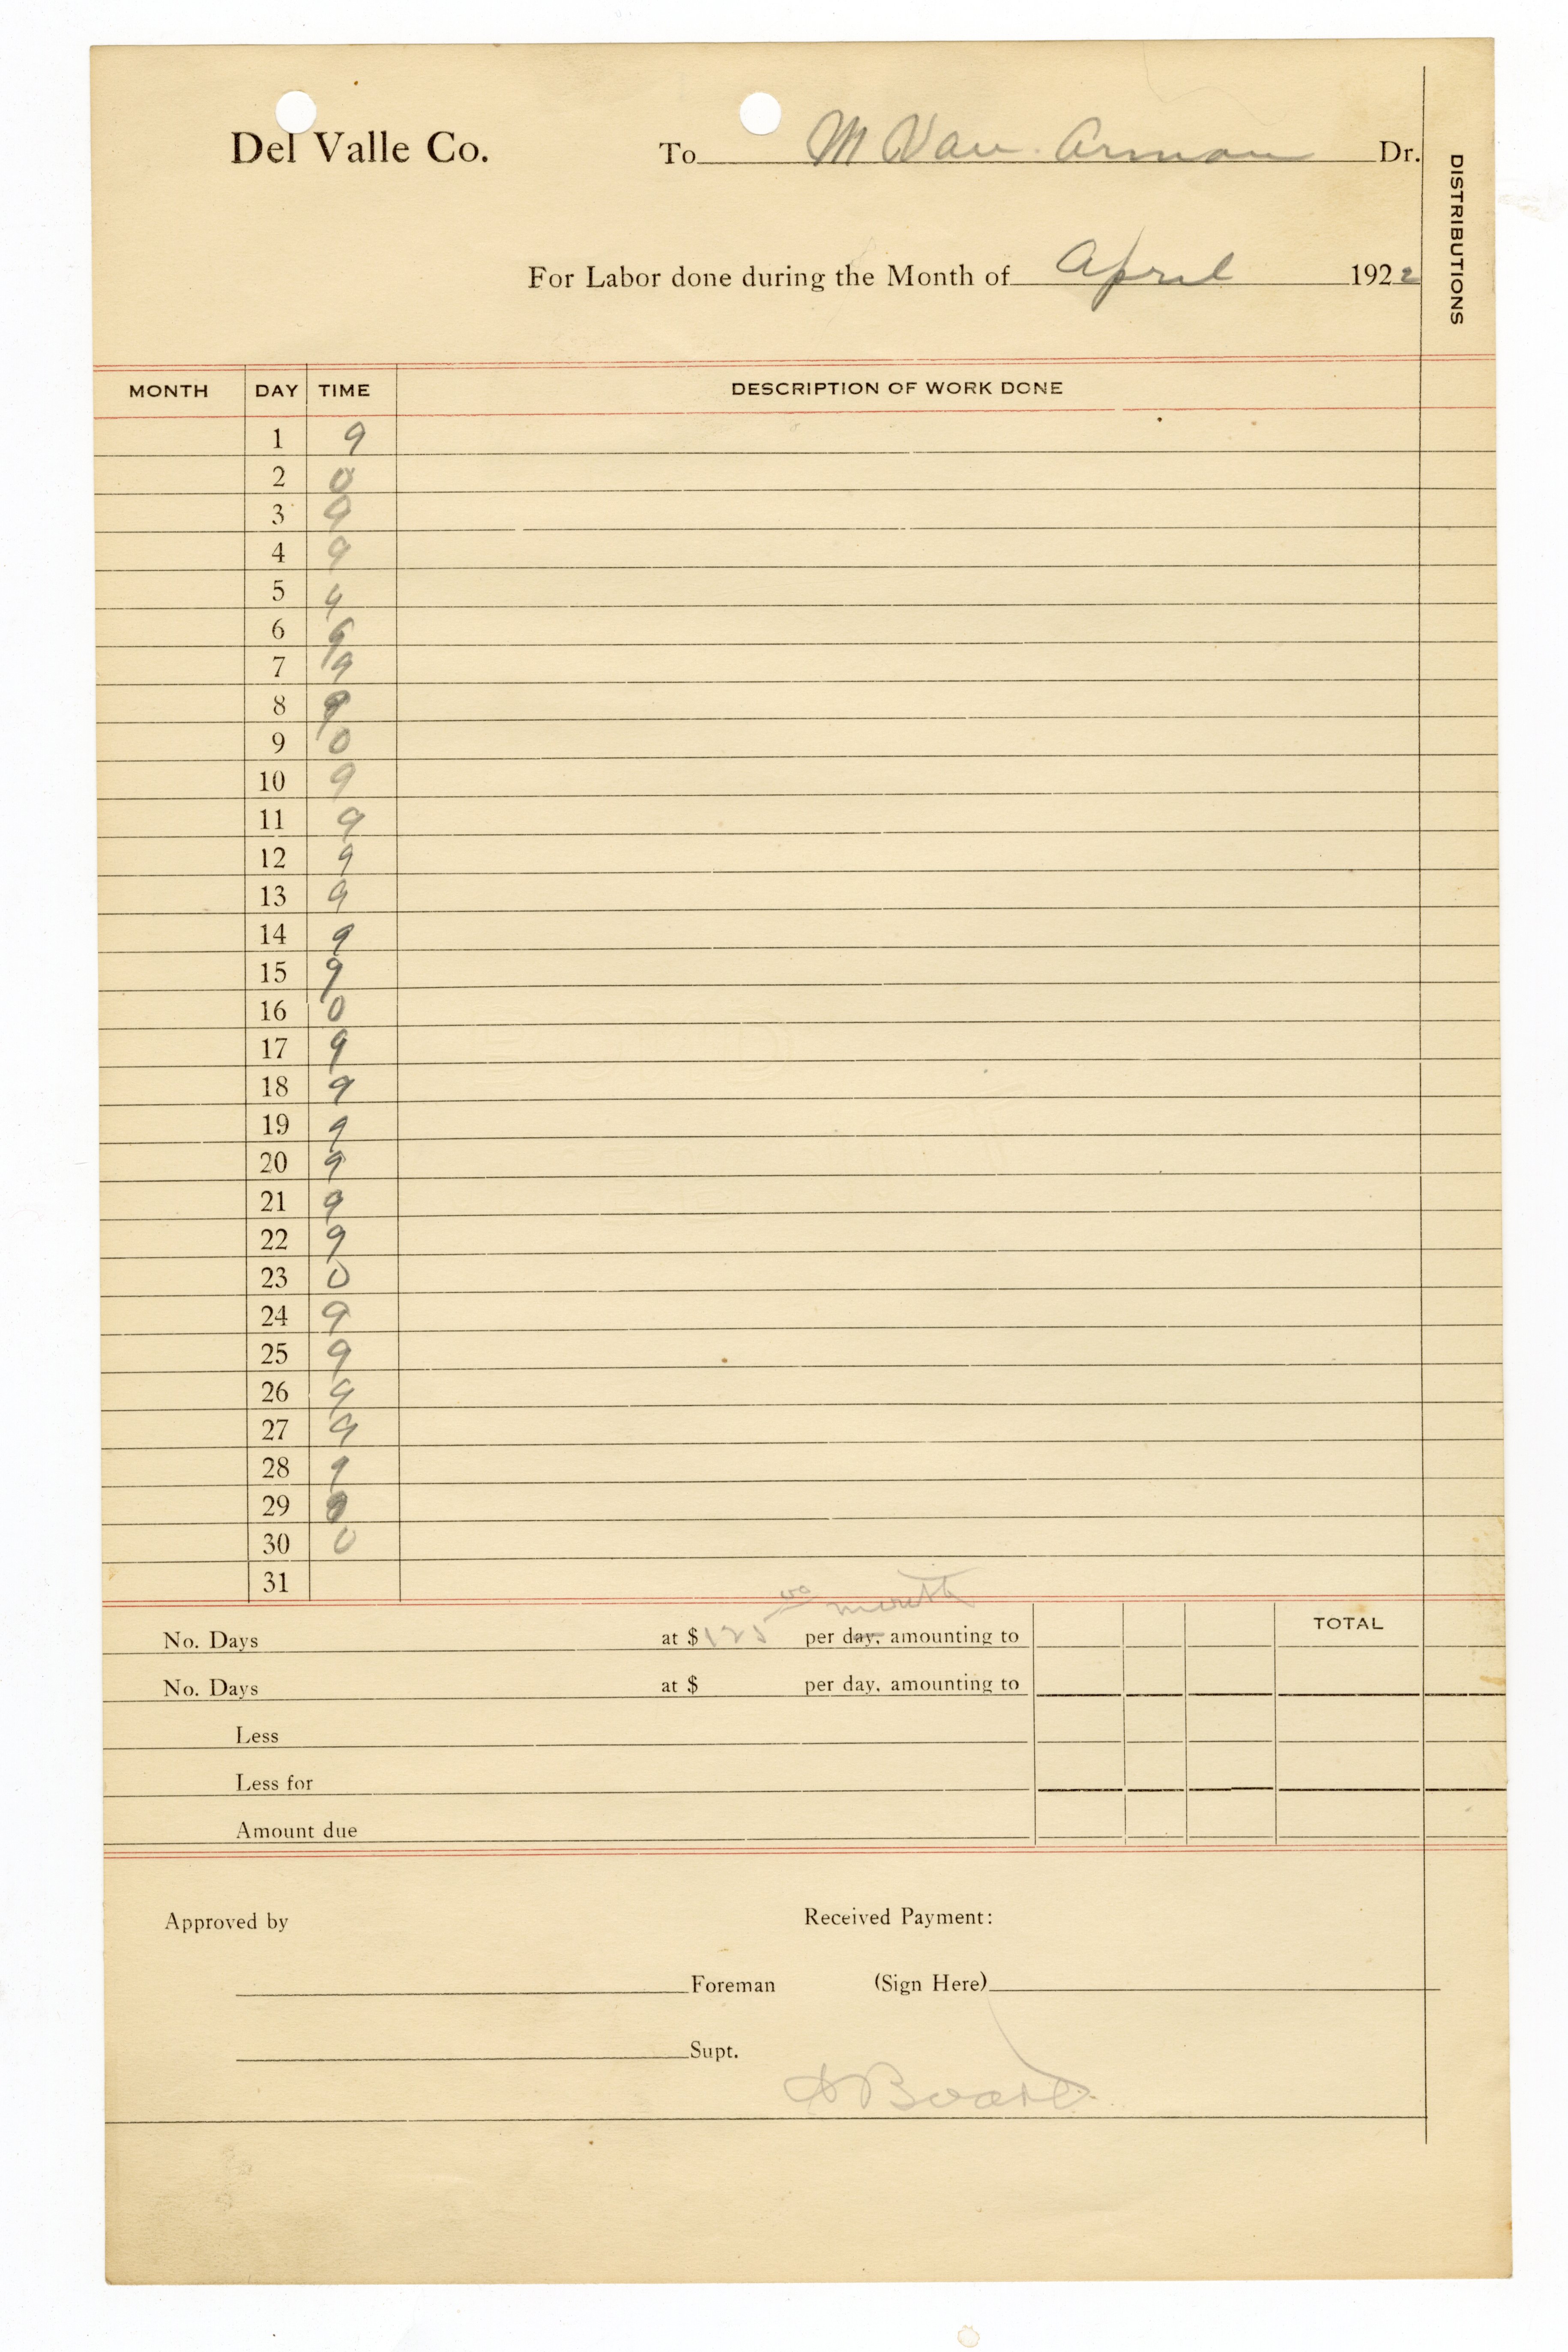 Del Valle Co. To M Van Arman Dr.
DISTRIBUTIONS
For Labor done during the Month of April 1922
MONTH DAY TIME DESCRIPTION OF WORK DONE
1 9
2 0
3 9
4 9
5 9
6 9
7 9
8 9
9 0
10 9
11 9
12 9
13 9
14 9
15 9
16 0
17 9
18 9
19 9
20 9
21 9
22 9
23 0
24 9
25 9
26 9
27 9
28 9
29 9
30 0
31
month
No. Days at $125 00 per day, amounting to TOTAL
No. Days at $ per day, amounting to
Less
Less for
Amount due
Approved by Received Payment:
Foreman (Sign Here)
Supt.